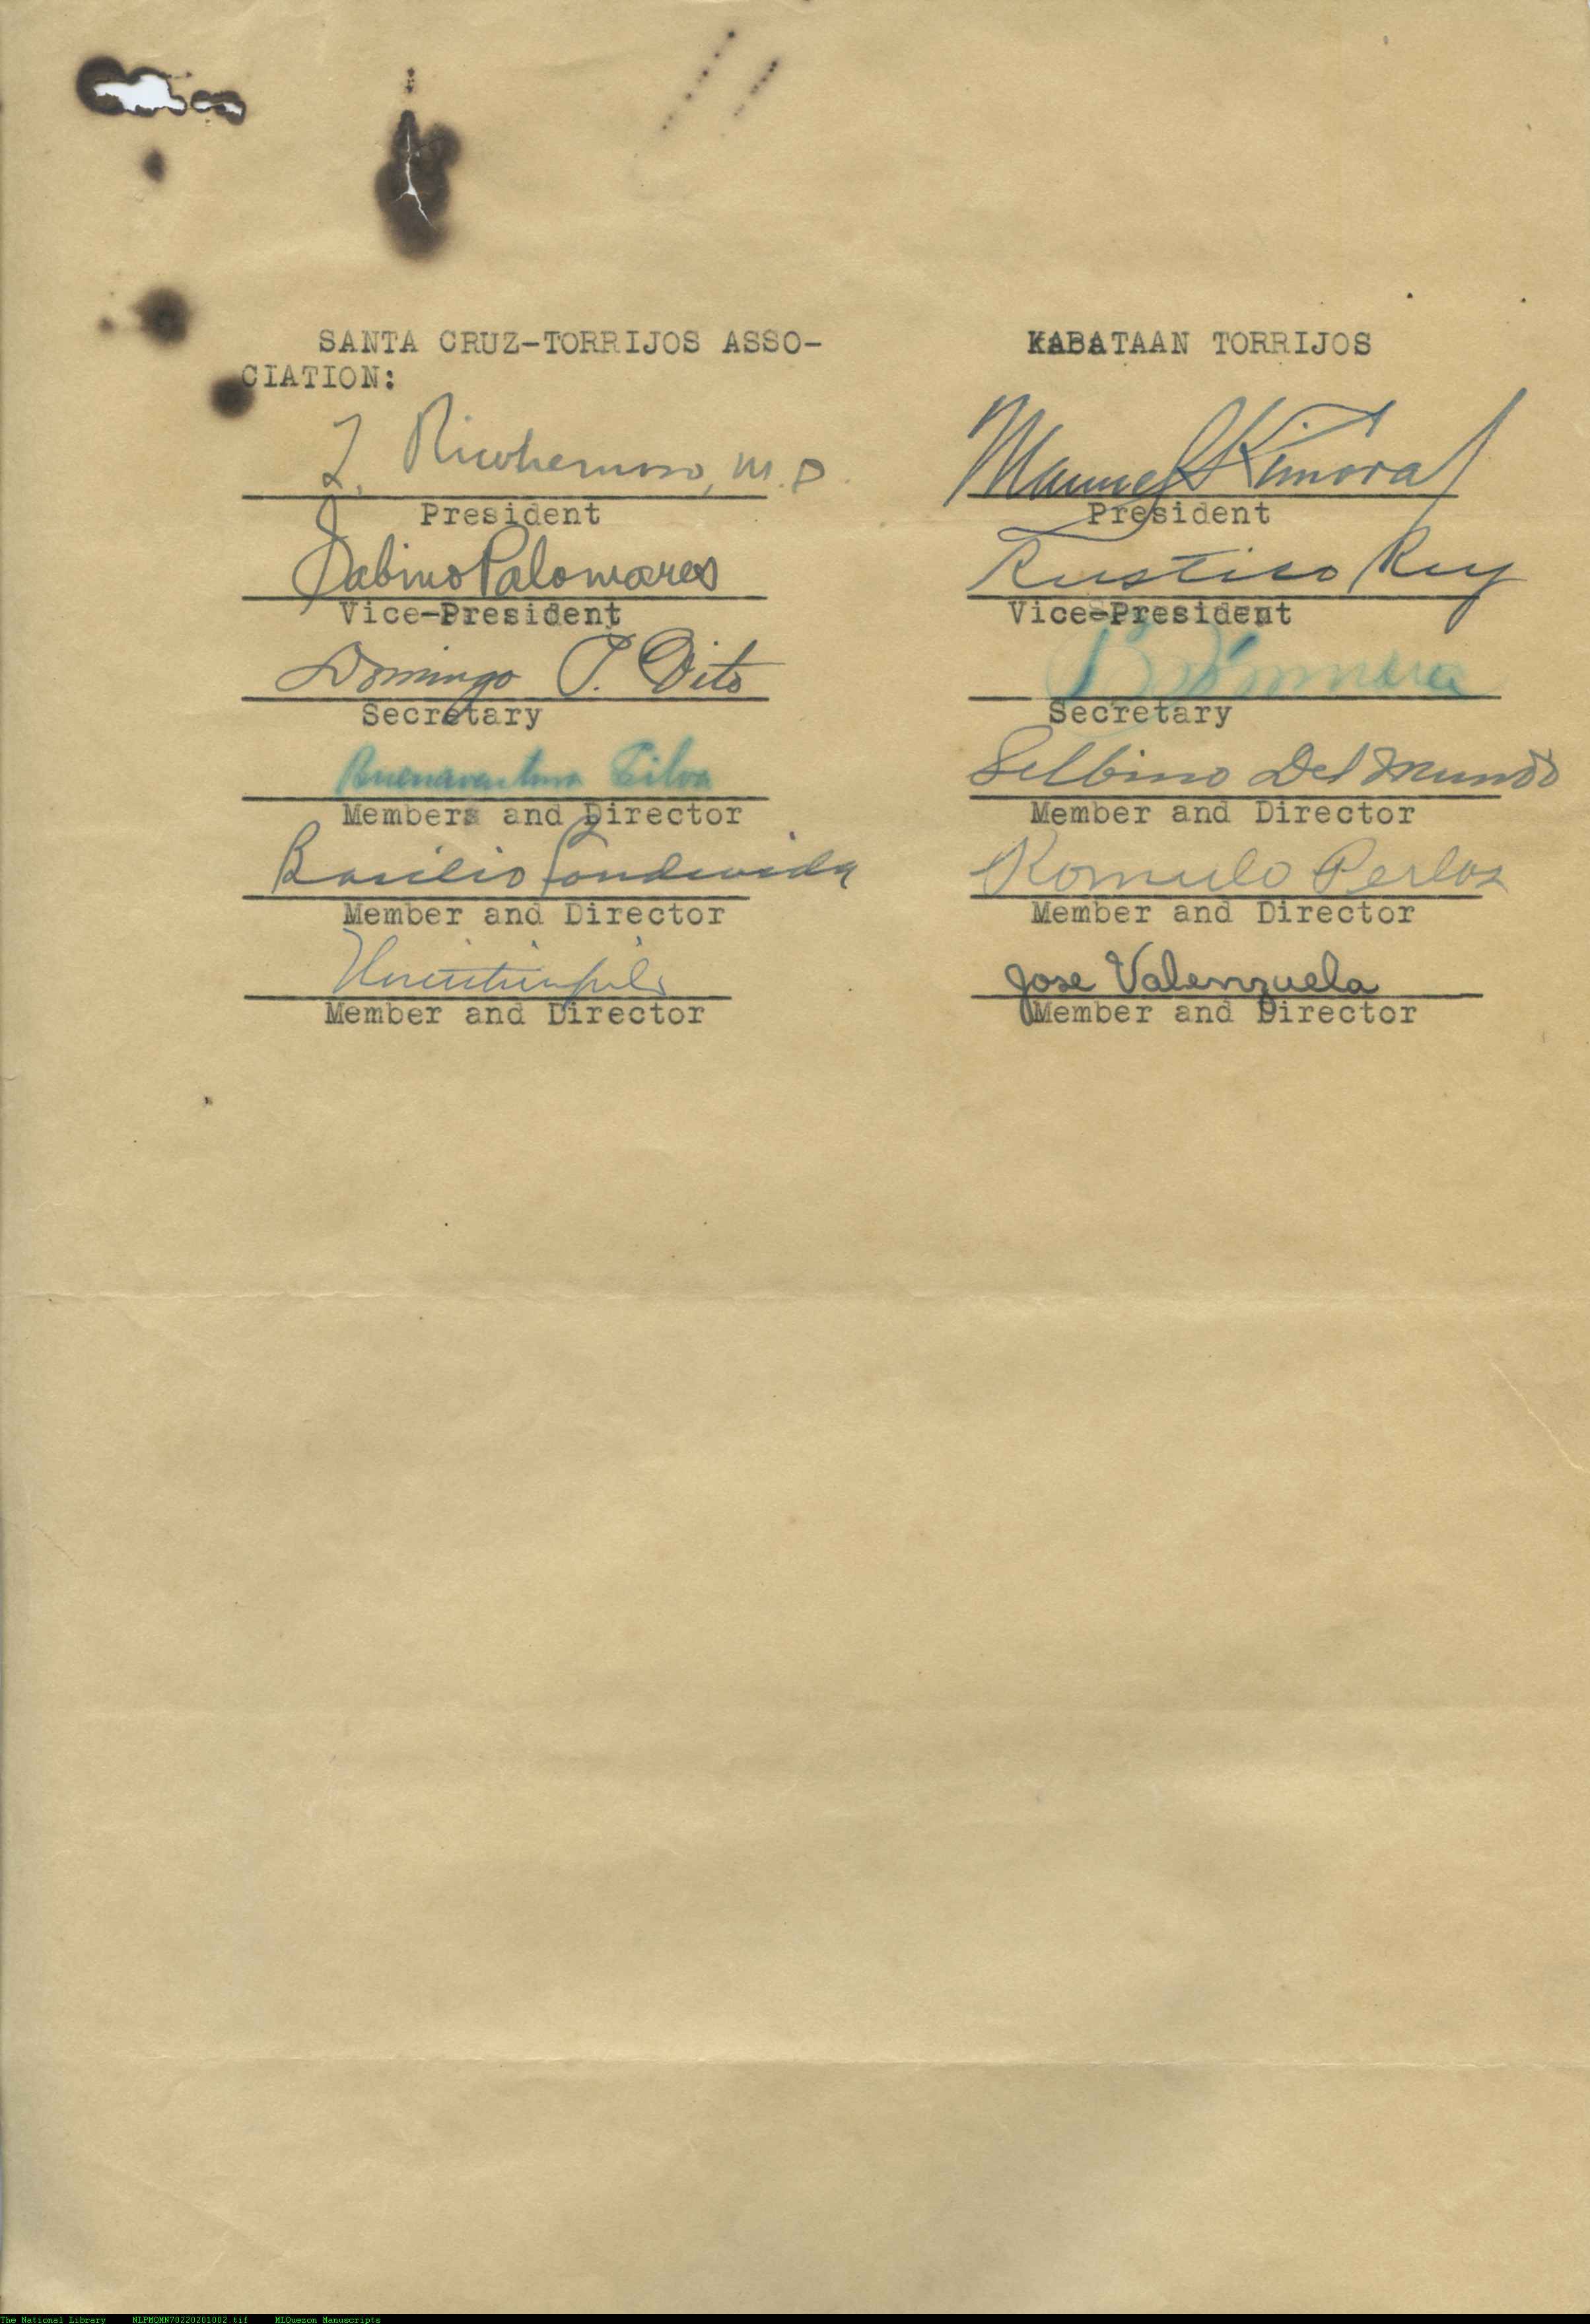 SANTA CRUZ-TORRIJOS ASSO-
CIATION:
Ricohermoso, M.D.
President
Sabino Palomares
Vice-President
Domingo P. Dito
Secretary
Buenaventura Silva
Members and Director
Basilio Fondevida
Member and Director
Member and Director
KABATAAN TORRIJOS
Manuel
President
Rustico Rey
Vice-President
Secretary
Selbino Del Mundo
Member and Director
Romulo Perlas
Member and Director
Jose Valenzuela
Member and Director
The National Library NLPMQMN70220201002.tif MLQuezon Manuscripts